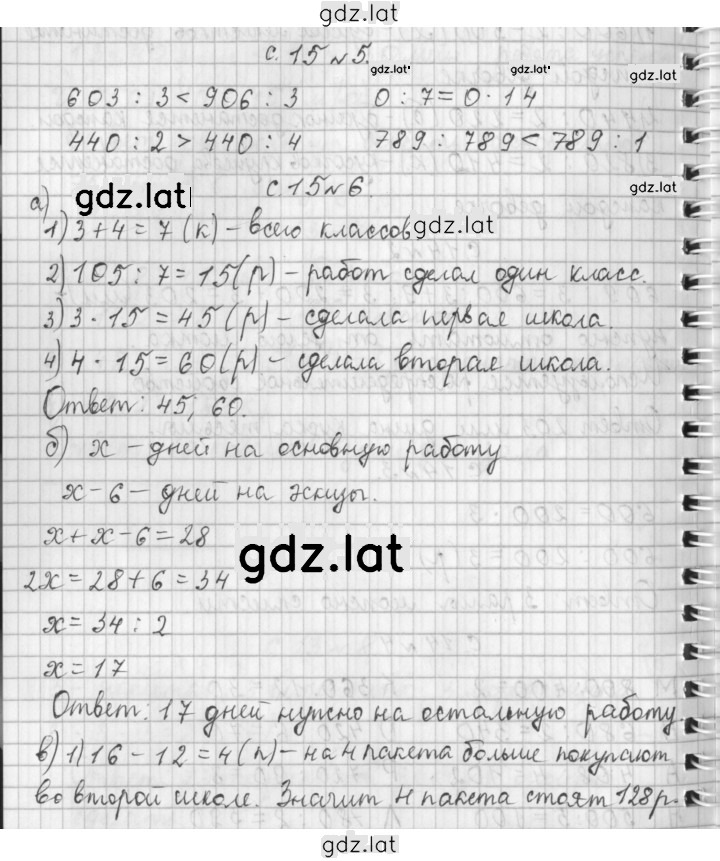 gdz.lat
с. 15 № 5.
gdz.lat gdz.lat
603 : 3 < 906 : 3 0 : 7 = 0 · 14
440 : 2 > 440 : 4 789 : 789 < 789 : 1
gdz.lat с. 15 № 6 gdz.lat
а)
1) 3 + 4 = 7 (к) – всего классов gdz.lat
2) 105 : 7 = 15 (р) – работ сделал один класс.
3) 3 · 15 = 45 (р) – сделала первая школа.
4) 4 · 15 = 60 (р) – сделала вторая школа.
Ответ: 45; 60.
б) х – дней на основную работу
х – 6 – дней на эскизы.
х + х – 6 = 28
gdz.lat
2х = 28 + 6 = 34
х = 34 : 2
х = 17
Ответ: 17 дней нужно на остальную работу.
в) 1) 16 – 12 = 4 (п) – на 4 пакета больше покупают
во второй школе. Значит 4 пакета стоят 128 р.
gdz.lat